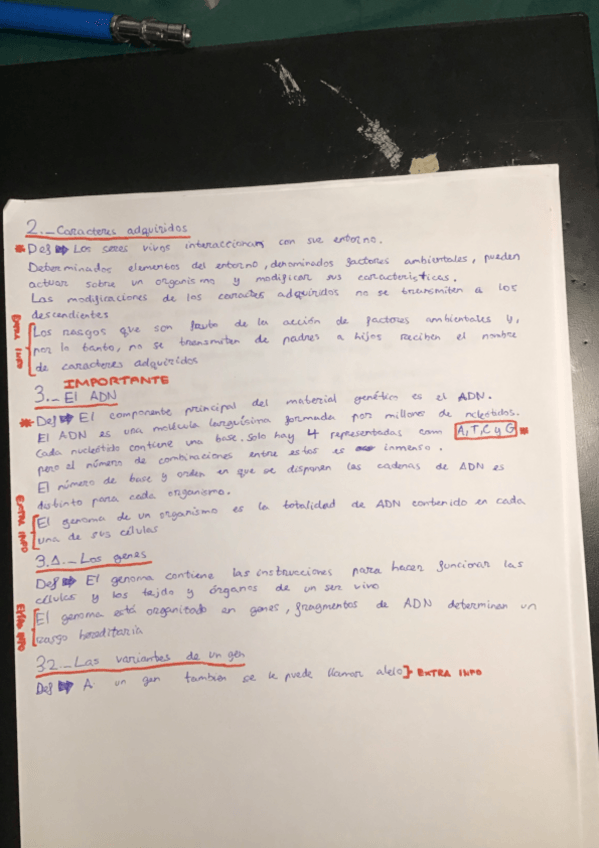 2._ Caracteres adquiridos
* Def ➡ Los seres vivos interaccionan con sur entorno.
Determinados elementos del entorno, denominados factores ambientales, pueden
actuar sobre un organismo y modificar sus características.
Las modificaciones de los caractes adquiridos no se transmiten a los
descendientes
EXTRA INFO
Los rasgos que son fruto de la acción de factores ambientales y,
por lo tanto, no se transmiten de padres a hijos reciben el nombre
de caracteres adquiridos
IMPORTANTE
3._ El ADN
* Def ➡ El componente principal del material genético es el ADN.
El ADN es una mollcula larguísima formada por millones de ncleótidos.
Cada nucleótido contiene una base. Solo hay 4 representadas com A, T, C y G *
pero el número de combinaciones entre estas es inmenso.
El número de base y orden en que se disponen las cadenas de ADN es
distinto para cada organismo.
EXTRA INFO
El genoma de un organismo es la totalidad de ADN contenido en cada
una de sus células
3.1._ Los genes
Def ➡ El genoma contiene las instrucciones para hacer funcionar las
células y los tejido y órganos de un ser vivo
EXTRA INFO
El genoma está organitado en genes, fragmentos de ADN determinan un
rasgo hereditaria
32._ Las variantes de un gen
Def ➡ A un gen tambien se le puede llamar alelo } EXTRA INFO